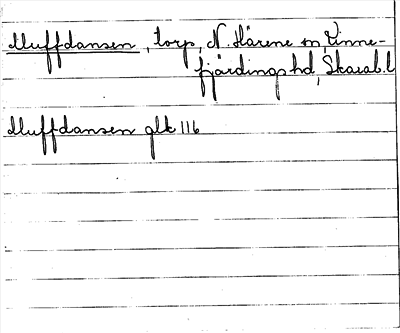 Muffdansen, torp, N. Härene sn, Kinne-
fjärdings hd, Skarab. l
Muffdansen glk 116